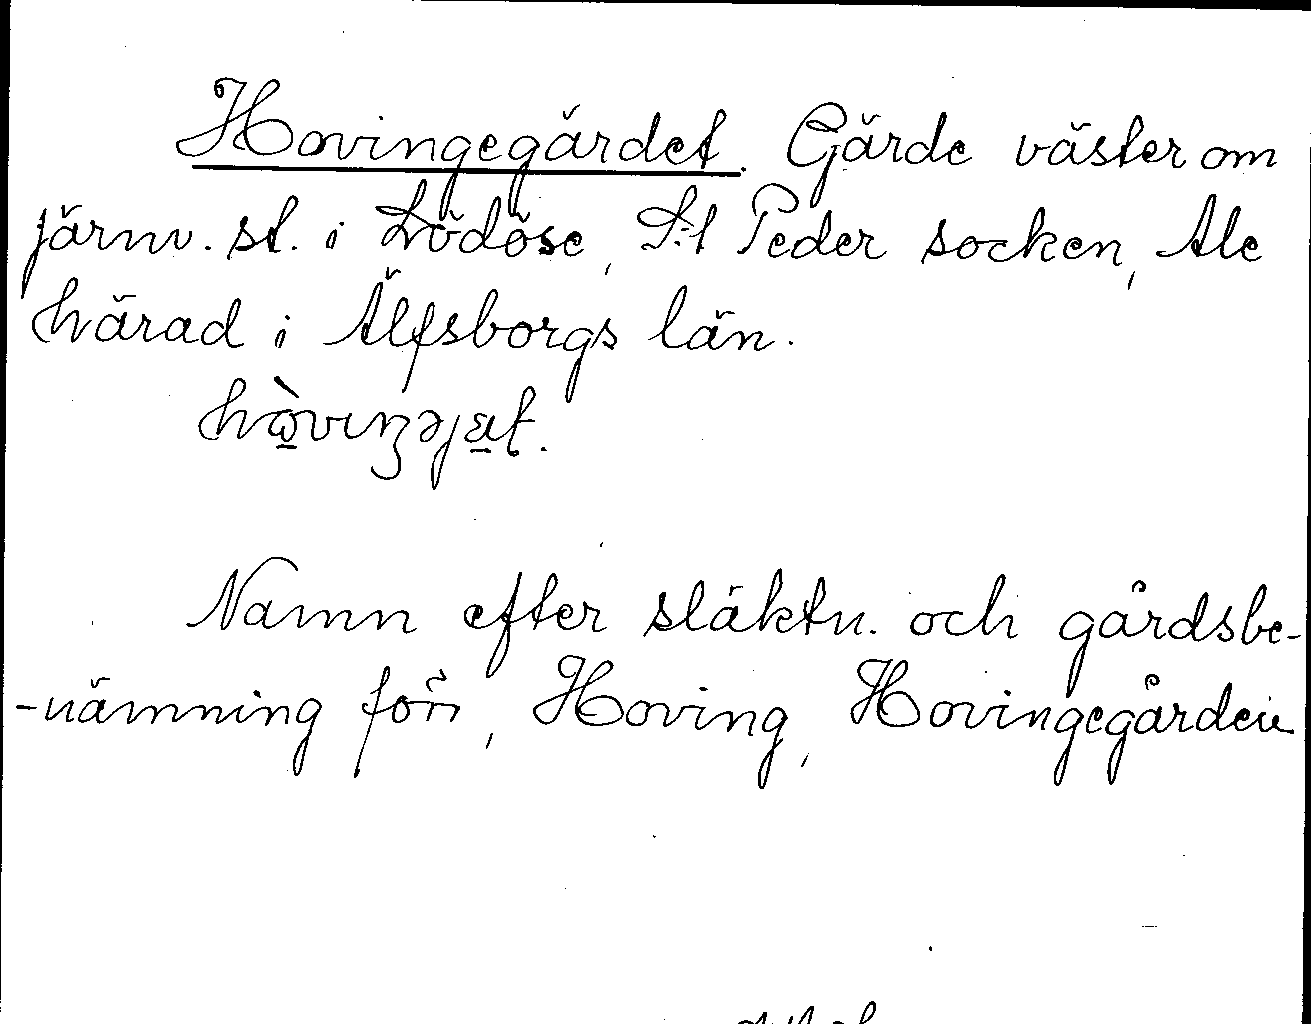 Hovingegärdet. Gärde väster om
järnv. st. i Lödöse, S:t Peder socken, Ale
härad i Älfsborgs län.
Namn efter släktn. och gårdsbe-
-nämning förr, Hoving, Hovingegården